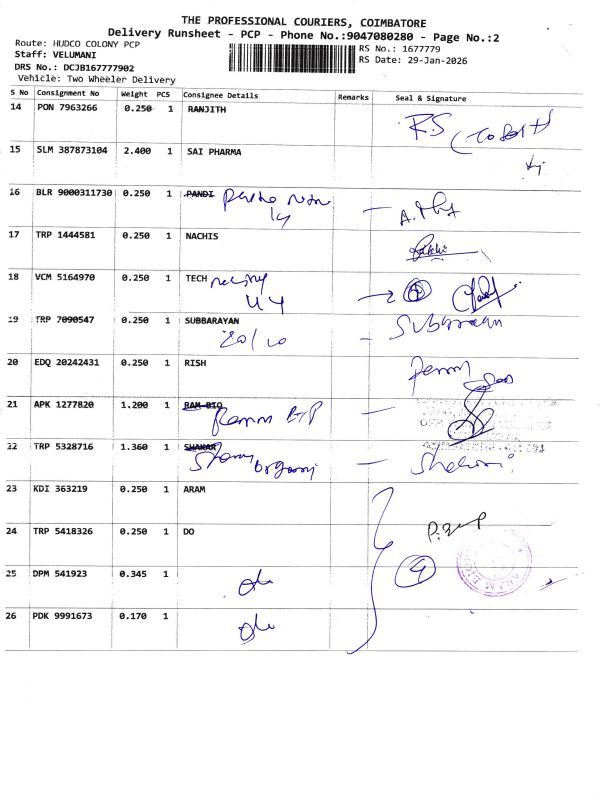 THE PROFESSIONAL COURIERS, COIMBATORE
Delivery Runsheet - PCP - Phone No.:9047080280 - Page No.:2
Route: HUDCO COLONY PCP
RS No.: 1677779
Staff: VELUMANI
RS Date: 29-Jan-2026
DRS No.: DCJB167777902
Vehicle: Two Wheeler Delivery
S No Consignment No Weight PCS Consignee Details Remarks Seal & Signature
14 PON 7963266 0.250 1 RANJITH R.S
15 SLM 387873104 2.400 1 SAI PHARMA
16 BLR 9000311730 0.250 1 PANDI
17 TRP 1444581 0.250 1 NACHIS
18 VCM 5164970 0.250 1 TECH
19 TRP 7090547 0.250 1 SUBBARAYAN Subbarayan
20 EDQ 20242431 0.250 1 RISH
21 APK 1277820 1.200 1 RAM BIO
22 TRP 5328716 1.360 1 SHAKAR
23 KDI 363219 0.250 1 ARAM
24 TRP 5418326 0.250 1 DO
25 DPM 541923 0.345 1 do
26 PDK 9991673 0.170 1 do